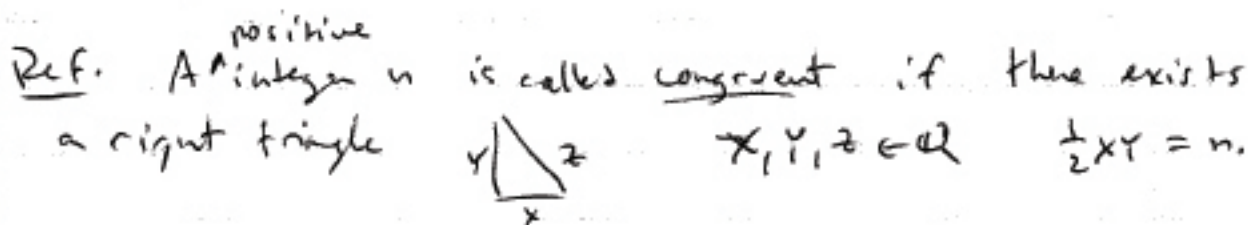 positive
Def. A ^ integer n is called congruent if there exists
a right triangle Y Z X X, Y, Z ∈ ℚ ½XY = n.